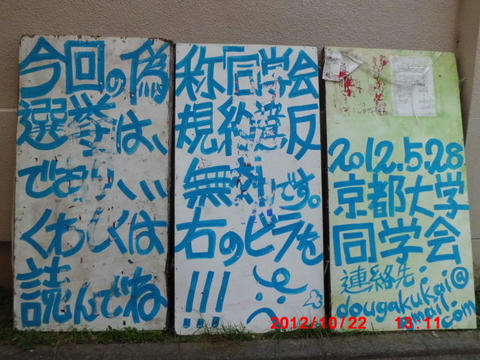 今回の偽称「同学会
選挙は、規約違反
であり、、、無効です。
くわしくは右のビラを
読んでね!!!
2012.5.28
京都大学
同学会
連絡先:
dougakukai@
gmail.com
2012/10/22 13:11